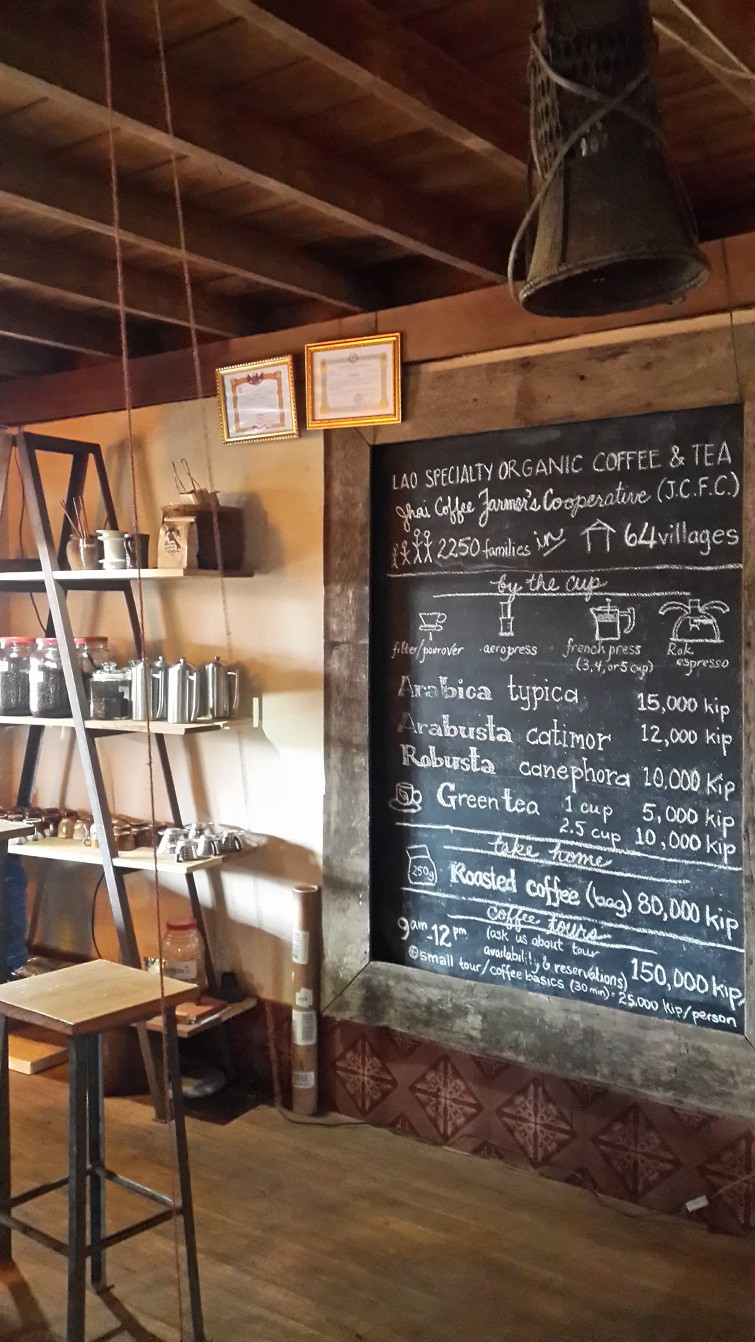 LAO SPECIALTY ORGANIC COFFEE & TEA
Jhai Coffee Farmer's Cooperative (J.C.F.C.)
2250 families in 64 villages
by the cup
filter/pourover aeropress french press Rok
(3,4, or 5 cup) espresso
Arabica typica 15,000 kip
Arabusta catimor 12,000 kip
Robusta canephora 10,000 kip
Green tea 1 cup 5,000 kip
2.5 cup 10,000 kip
take home
250g Roasted coffee (bag) 80,000 kip
coffee tours
9am-12pm (ask us about tour
availability & reservations) 150,000 kip
☺small tour/coffee basics (30 min)= 25.000 kip/person